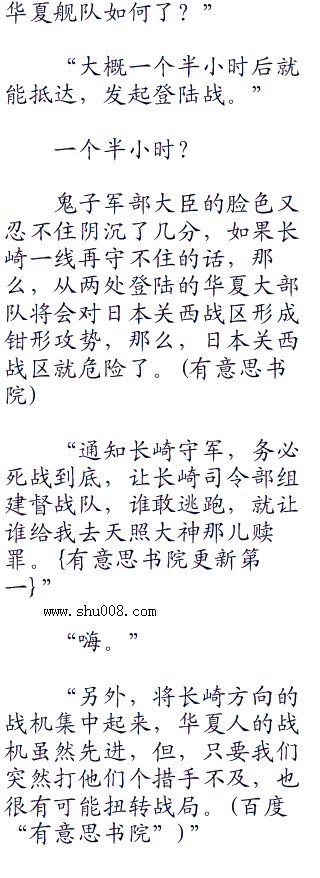 华夏舰队如何了？”
“大概一个半小时后就
能抵达，发起登陆战。”
一个半小时？
鬼子军部大臣的脸色又
忍不住阴沉了几分，如果长
崎一线再守不住的话，那
么，从两处登陆的华夏大部
队将会对日本关西战区形成
钳形攻势，那么，日本关西
战区就危险了。(有意思书
院)
“通知长崎守军，务必
死战到底，让长崎司令部组
建督战队，谁敢逃跑，就让
谁给我去天照大神那儿赎
罪。{有意思书院更新第
一}”
www.shu008.com
“嗨。”
“另外，将长崎方向的
战机集中起来，华夏人的战
机虽然先进，但，只要我们
突然打他们个措手不及，也
很有可能扭转战局。(百度
“有意思书院”)”